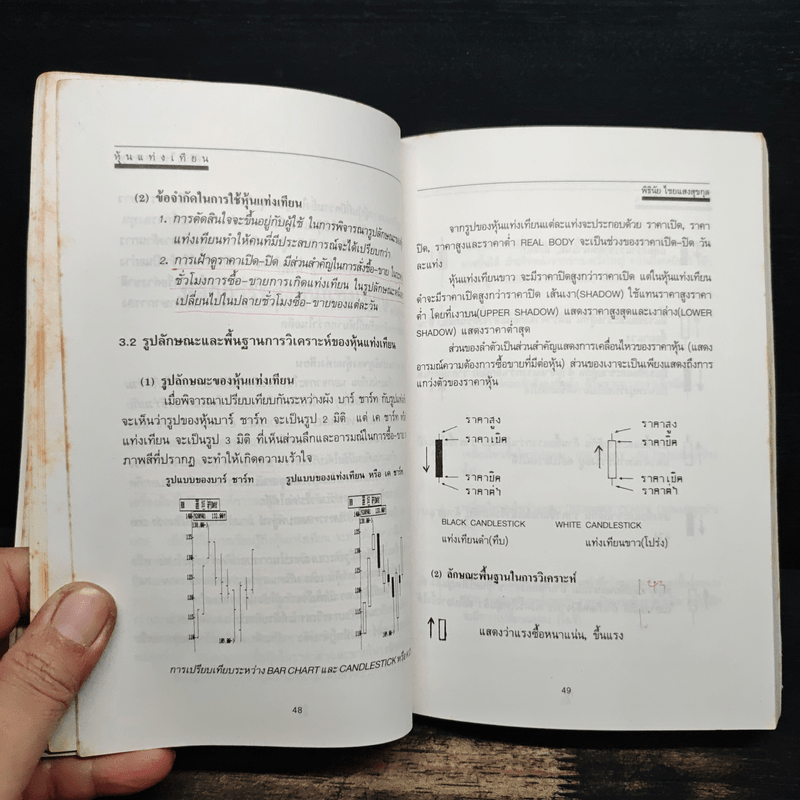 หุ้นแท่งเทียน
(2) ข้อจำกัดในการใช้หุ้นแท่งเทียน
1. การตัดสินใจจะขึ้นอยู่กับผู้ใช้ ในการพิจารณารูปลักษณะของ
แท่งเทียนทำให้คนที่มีประสบการณ์จะได้เปรียบกว่า
2. การเฝ้าดูราคาเปิด-ปิด มีส่วนสำคัญในการสั่งซื้อ-ขาย
ชั่วโมงการซื้อ-ขายการเกิดแท่งเทียน ในรูปลักษณะ
เปลี่ยนไปในปลายชั่วโมงซื้อ-ขายของแต่ละวัน
3.2 รูปลักษณะและพื้นฐานการวิเคราะห์ของหุ้นแท่งเทียน
(1) รูปลักษณะของหุ้นแท่งเทียน
เมื่อพิจารณาเปรียบเทียบกันระหว่างผัง บาร์ ชาร์ท กับรูปแท่ง
จะเห็นว่ารูปของหุ้นบาร์ ชาร์ท จะเป็นรูป 2 มิติ แต่ เค ชาร์ท
แท่งเทียน จะเป็นรูป 3 มิติ ที่เห็นส่วนลึกและอารมณ์ในการซื้อ-ขาย
ภาพสีที่ปรากฏ จะทำให้เกิดความเร้าใจ
รูปแบบของบาร์ ชาร์ท รูปแบบของแท่งเทียน หรือ เค ชาร์ท
การเปรียบเทียบระหว่าง BAR CHART และ CANDLESTICK
48
พิธินัย ไชยแสงสุขกุล
จากรูปของหุ้นแท่งเทียนแต่ละแท่งจะประกอบด้วย ราคาเปิด, ราคา
ปิด, ราคาสูงและราคาต่ำ REAL BODY จะเป็นช่วงของราคาเปิด-ปิด วัน
ละแท่ง
หุ้นแท่งเทียนขาว จะมีราคาปิดสูงกว่าราคาเปิด แต่ในหุ้นแท่งเทียน
ดำจะมีราคาเปิดสูงกว่าราคาปิด เส้นเงา(SHADOW) ใช้แทนราคาสูงราคา
ต่ำ โดยที่เงาบน(UPPER SHADOW) แสดงราคาสูงสุดและเงาล่าง(LOWER
SHADOW) แสดงราคาต่ำสุด
ส่วนของลำตัวเป็นส่วนสำคัญแสดงการเคลื่อนไหวของราคาหุ้น (แสดง
อารมณ์ความต้องการซื้อขายที่มีต่อหุ้น) ส่วนของเงาจะเป็นเพียงแสดงถึงการ
แกว่งตัวของราคาหุ้น
ราคาสูง ราคาสูง
ราคาเปิด ราคาปิด
ราคาปิด ราคาเปิด
ราคาต่ำ ราคาต่ำ
BLACK CANDLESTICK WHITE CANDLESTICK
แท่งเทียนดำ(ทึบ) แท่งเทียนขาว(โปร่ง)
(2) ลักษณะพื้นฐานในการวิเคราะห์
แสดงว่าแรงซื้อหนาแน่น, ขึ้นแรง
49